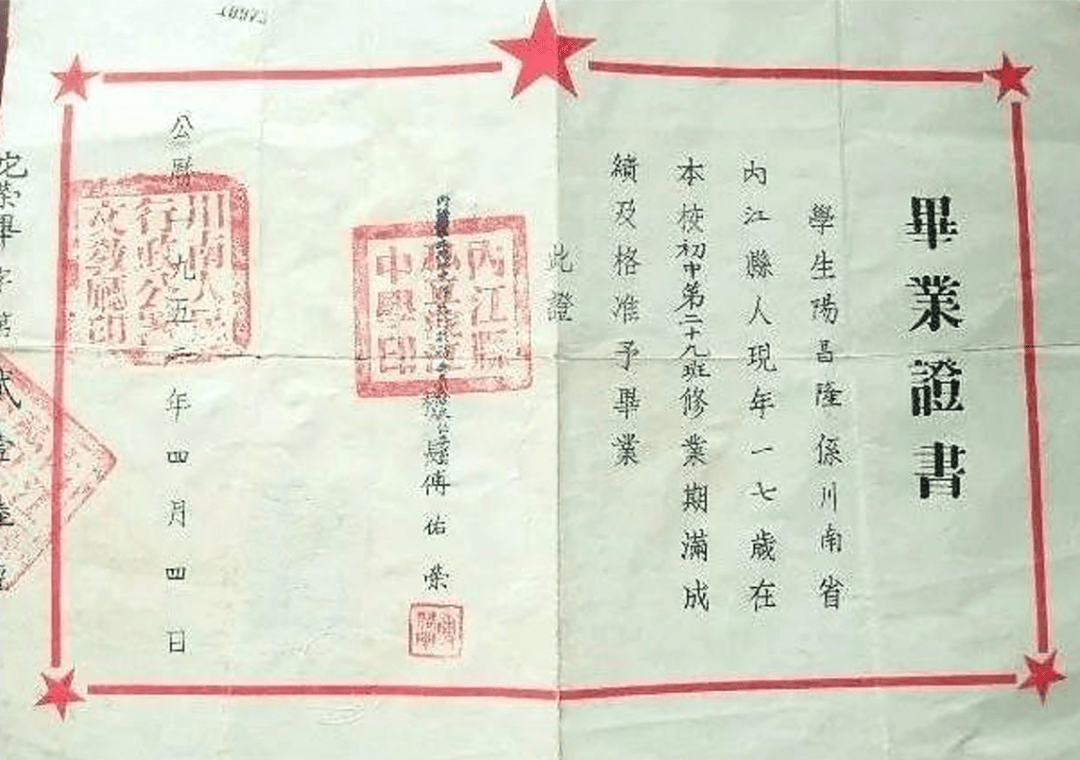 畢業證書
學生陽昌隆係川南省
內江縣人現年一七歲在
本校初中第二十九班修業期滿成
績及格准予畢業
此證
內江縣
中學印
傅佑榮
川南人民
行政公署
文教廳印
公曆一九五二年四月四日
沱榮畢字第貳壹陸號